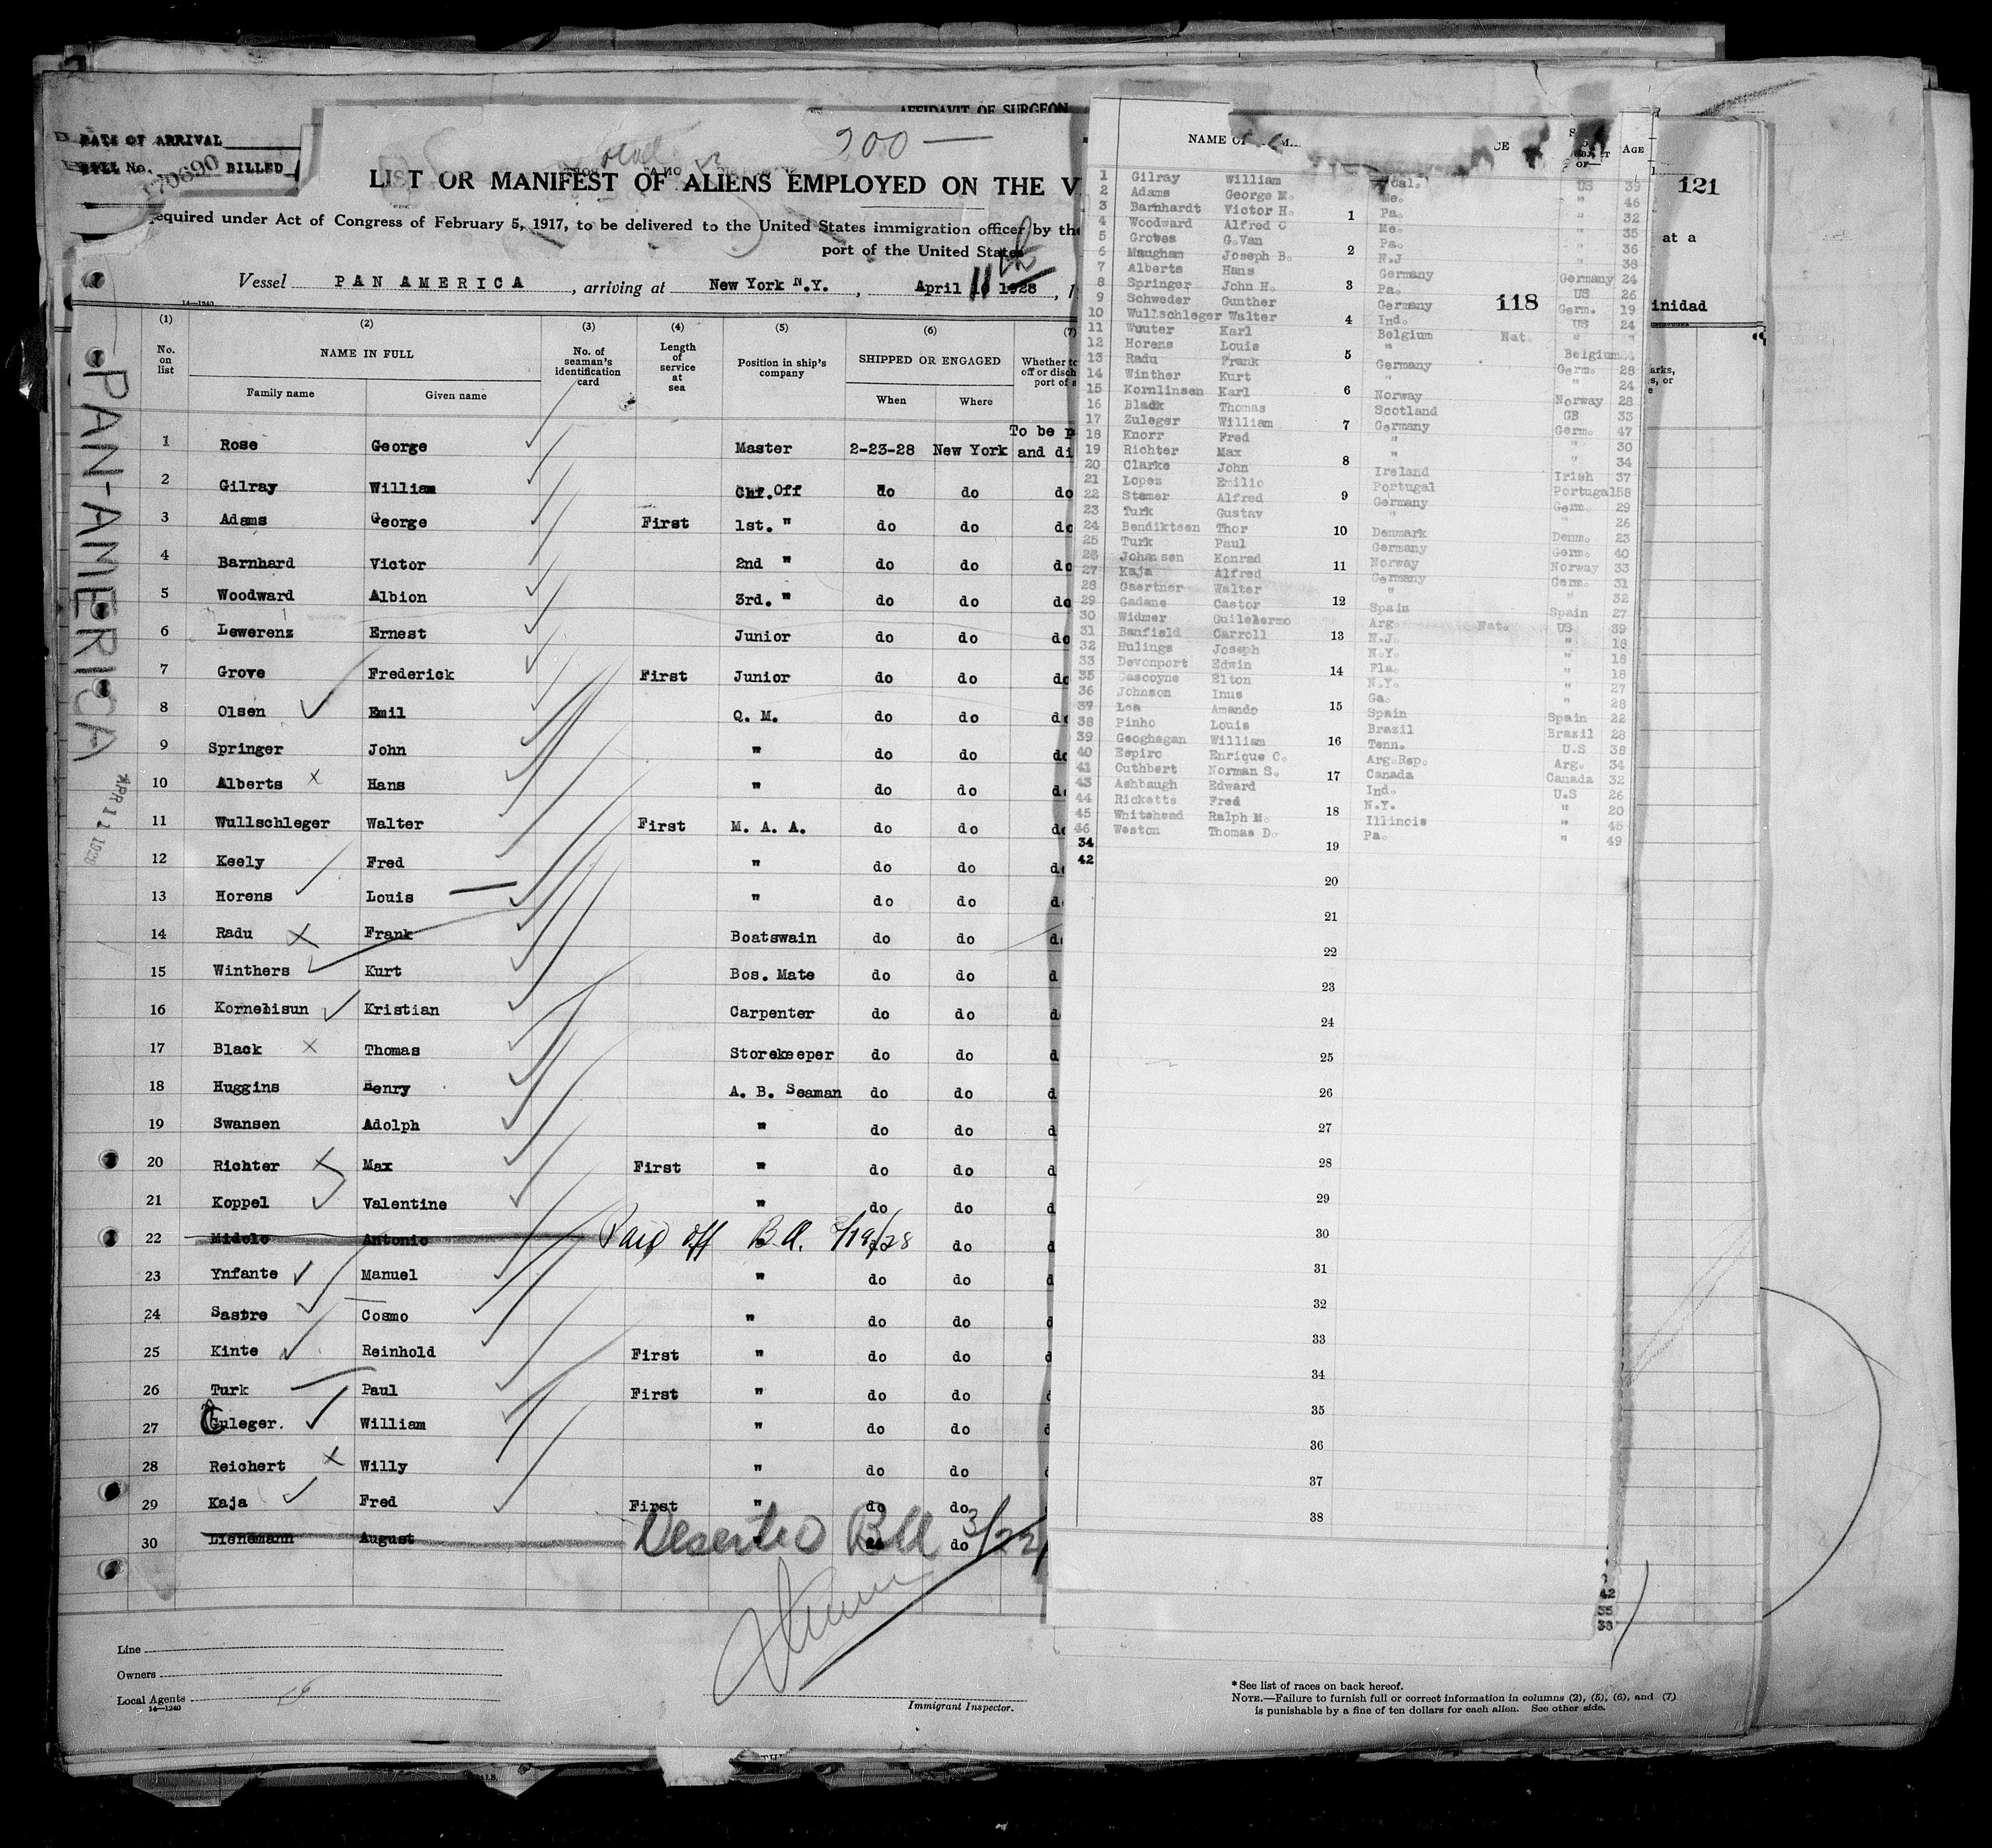 AFFIDAVIT OF SURGEON
DATE OF ARRIVAL
BILL No. 170690 BILLED
200 —
LIST OR MANIFEST OF ALIENS EMPLOYED ON THE V
equired under Act of Congress of February 5, 1917, to be delivered to the United States immigration officer by the
port of the United States
Vessel PAN AMERICA, arriving at New York N.Y., April 11th 1928
14—1240
(1) (2) (3) (4) (5) (6) (7)
No. on list
NAME IN FULL
Family name Given name
No. of seaman's identification card
Length of service at sea
Position in ship's company
SHIPPED OR ENGAGED
When Where
Whether to
off or disch
port of a
1 Rose George Master 2-23-28 New York To be p and di
2 Gilray William Chf. Off do do do
3 Adams George First 1st. " do do do
4 Barnhard Victor 2nd " do do do
5 Woodward Albion 3rd. " do do do
6 Lewerenz Ernest Junior do do do
7 Grove Frederick First Junior do do do
8 Olsen Emil Q. M. do do do
9 Springer John " do do do
10 Alberts Hans " do do d
11 Wullschleger Walter First M. A. A. do do d
12 Keely Fred " do do d
13 Horens Louis " do do d
14 Radu Frank Boatswain do do d
15 Winthers Kurt Bos. Mate do do d
16 Kornelisun Kristian Carpenter do do d
17 Black Thomas Storekeeper do do d
18 Huggins Henry A. B. Seaman do do d
19 Swansen Adolph " do do d
20 Richter Max First " do do d
21 Koppel Valentine " do do d
22 Midelo Antonio Paid off B.A. 3/19/28 do d
23 Ynfante Manuel " do do d
24 Sastre Cosmo " do do d
25 Kinte Reinhold First " do do d
26 Turk Paul First " do do
27 Guleger. William " do do
28 Reichert Willy " do do
29 Kaja Fred First " do do
30 Lienemann August Deserted BA 3/22/ do
PAN-AMERICA
APR 11 1928
Line
Owners
Local Agents
14—1240
Immigrant Inspector.
*See list of races on back hereof.
NOTE.—Failure to furnish full or correct information in columns (2), (5), (6), and (7)
is punishable by a fine of ten dollars for each alien. See other side.
NAME OF
AGE
1 Gilray William Cal. US 39
2 Adams George M. Me. " 46
3 Barnhardt Victor H. Pa. " 32
4 Woodward Alfred C Me. " 35
5 Groves G.Van Pa. " 36
6 Maugham Joseph B. N.J " 38
7 Alberts Hans Germany Germany 24
8 Springer John H. Pa. US 26
9 Schweder Gunther Germany Germ. 19
10 Wullschleger Walter Ind. US 24
11 Wuuter Karl Belgium Nat. "
12 Horens Louis " Belgium
13 Radu Frank Germany Germ. 28
14 Winther Kurt " " 24
15 Kornlinsen Karl Norway Norway 28
16 Black Thomas Scotland GB 33
17 Zuleger William Germany Germ. 47
18 Knorr Fred " " 30
19 Richter Max " " 34
20 Clarke John Ireland Irish 37
21 Lopez Emilio Portugal Portugal 58
22 Stamer Alfred Germany Germ. 29
23 Turk Gustav " " 26
24 Bendiktsen Thor Denmark Denm. 23
25 Turk Paul Germany Germ. 40
26 Johansen Konrad Norway Norway 33
27 Kaja Alfred Germany Germ. 31
28 Gaertner Walter " " 32
29 Gadane Castor Spain Spain 27
30 Widmer Guilelermo Arg. Nat. US 39
31 Banfield Carroll N.J. " 18
32 Hulings Joseph N.Y. " 18
33 Devonport Edwin Fla. " 18
35 Gascoyne Elton N.Y. " 27
36 Johnson Inus Ga. " 28
37 Lea Amando Spain Spain 22
38 Pinho Louis Brazil Brazil 28
39 Geoghegan William Tenn. U.S 38
40 Espiro Enrique C. Arg.Rep. Arg. 34
41 Cuthbert Norman S. Canada Canada 32
43 Ashbaugh Edward Ind. U.S 26
44 Ricketts Fred N.Y. " 20
45 Whitehead Ralph M. Illinois " 45
46 Weston Thomas D. Pa. " 49
34
42
1
2
3
4
5
6
7
8
9
10
11
12
13
14
15
16
17
18
19
20
21
22
23
24
25
26
27
28
29
30
31
32
33
34
35
36
37
38
118
121
at a
inidad
arks,
s, or
42
35
33